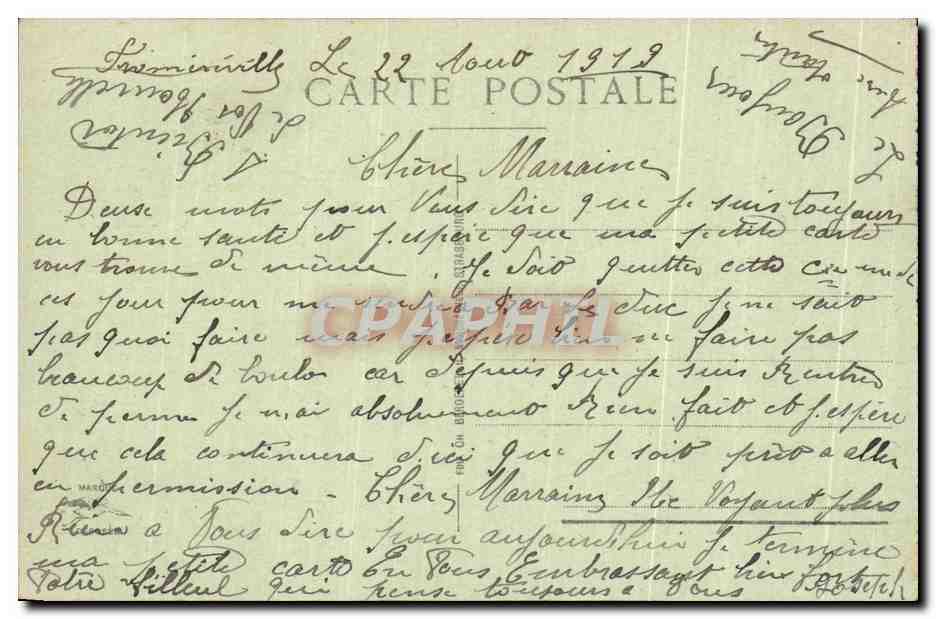 Fromeréville Le 22 Aout 1919
CARTE POSTALE
Le Bonjour
Chère Marraine
Deuse mots pour Vous dire que je suis toujours
en bonne santé et j'espère que ma petite carte
vous trouve de même. Je doit quitter cette
ces jour pour me Bar le duc je ne sait
pas quoi faire mais j'espère bien ne faire pas
beaucoup de boulo car depuis que je suis Rentré
de perme je n'ai absolument Rien fait et j'espère
que cela continuera d'ici que je soit prêt a aller
en permission - Chère Marraine Ne Voyant plus
Rien a Vous dire pour aujourdhui je termine
ma petite carte En Vous Embrassant bien fort
Votre filleul qui pense toujours a Vous Joseph
CPAPHIL
STRASBOURG